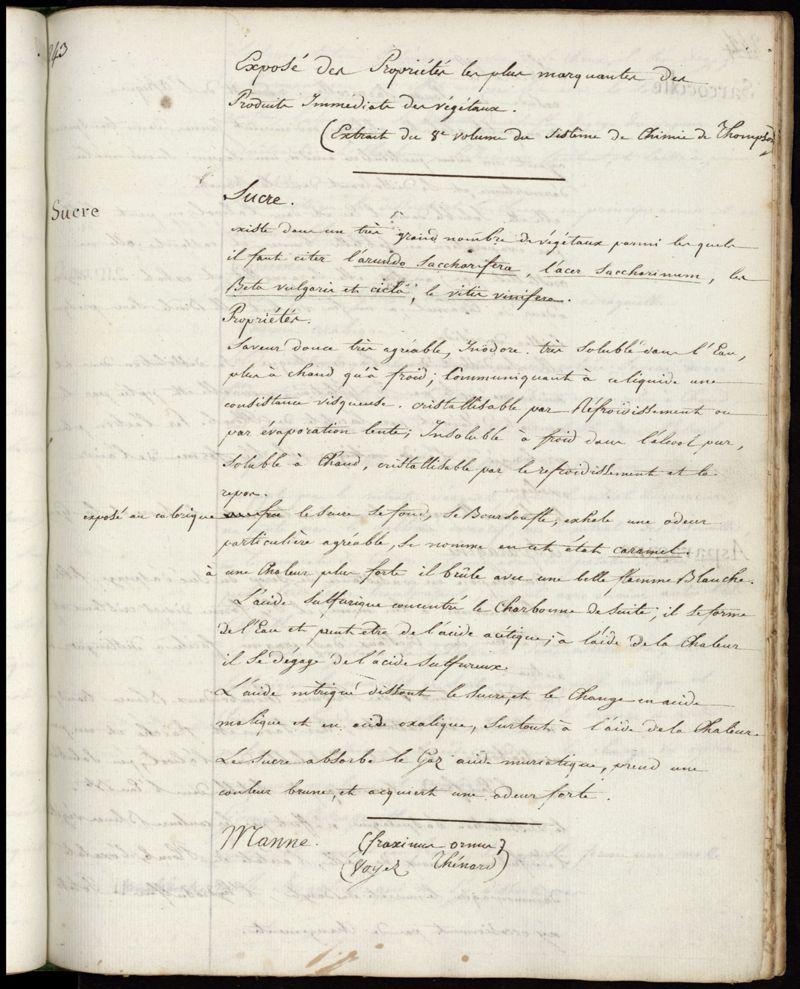 243
Exposé des Propriétés les plus marquantes des
Produits Immediats des végétaux.
(Extrait du 8e volume du sistème de Chimie de Thompson)
Sucre
Sucre.
existe dans un très grand nombre de végétaux parmi lesquels
il faut citer l'arundo Saccharifera, l'acer Saccharinum, les
Beta vulgaris et cicla, le vitis vinifera.
Propriétés.
Saveur douce très agréable, Inodore. très soluble dans l'Eau,
plus à chaud qu'à froid; Communiquant à ce liquide une
consistance visqueuse. cristallisable par Réfroidissement ou
par évaporation lente; Insoluble à froid dans l'alcool pur,
soluble à Chaud, cristallisable par le refroidissement et le
repos.
exposé au calorique le sucre se fond, se Boursoufle, exhale une odeur
particulière agréable, se nomme en cet état caramel.
à une Chaleur plus forte il brûle avec une belle flamme Blanche.
L'acide Sulfurique concentré le Charbonne de suite; il se forme
de l'Eau et peut être de l'acide acétique; à l'aide de la Chaleur
il se dégage de l'acide sulfureux.
L'acide nitrique dissout le sucre, et le Change en acide
malique et en acide oxalique, surtout à l'aide de la Chaleur.
Le sucre absorbe le Gaz acide muriatique, prend une
couleur brune, et acquiert une odeur forte.
Manne. (fraxinus ornus)
(Voyez Thénard)